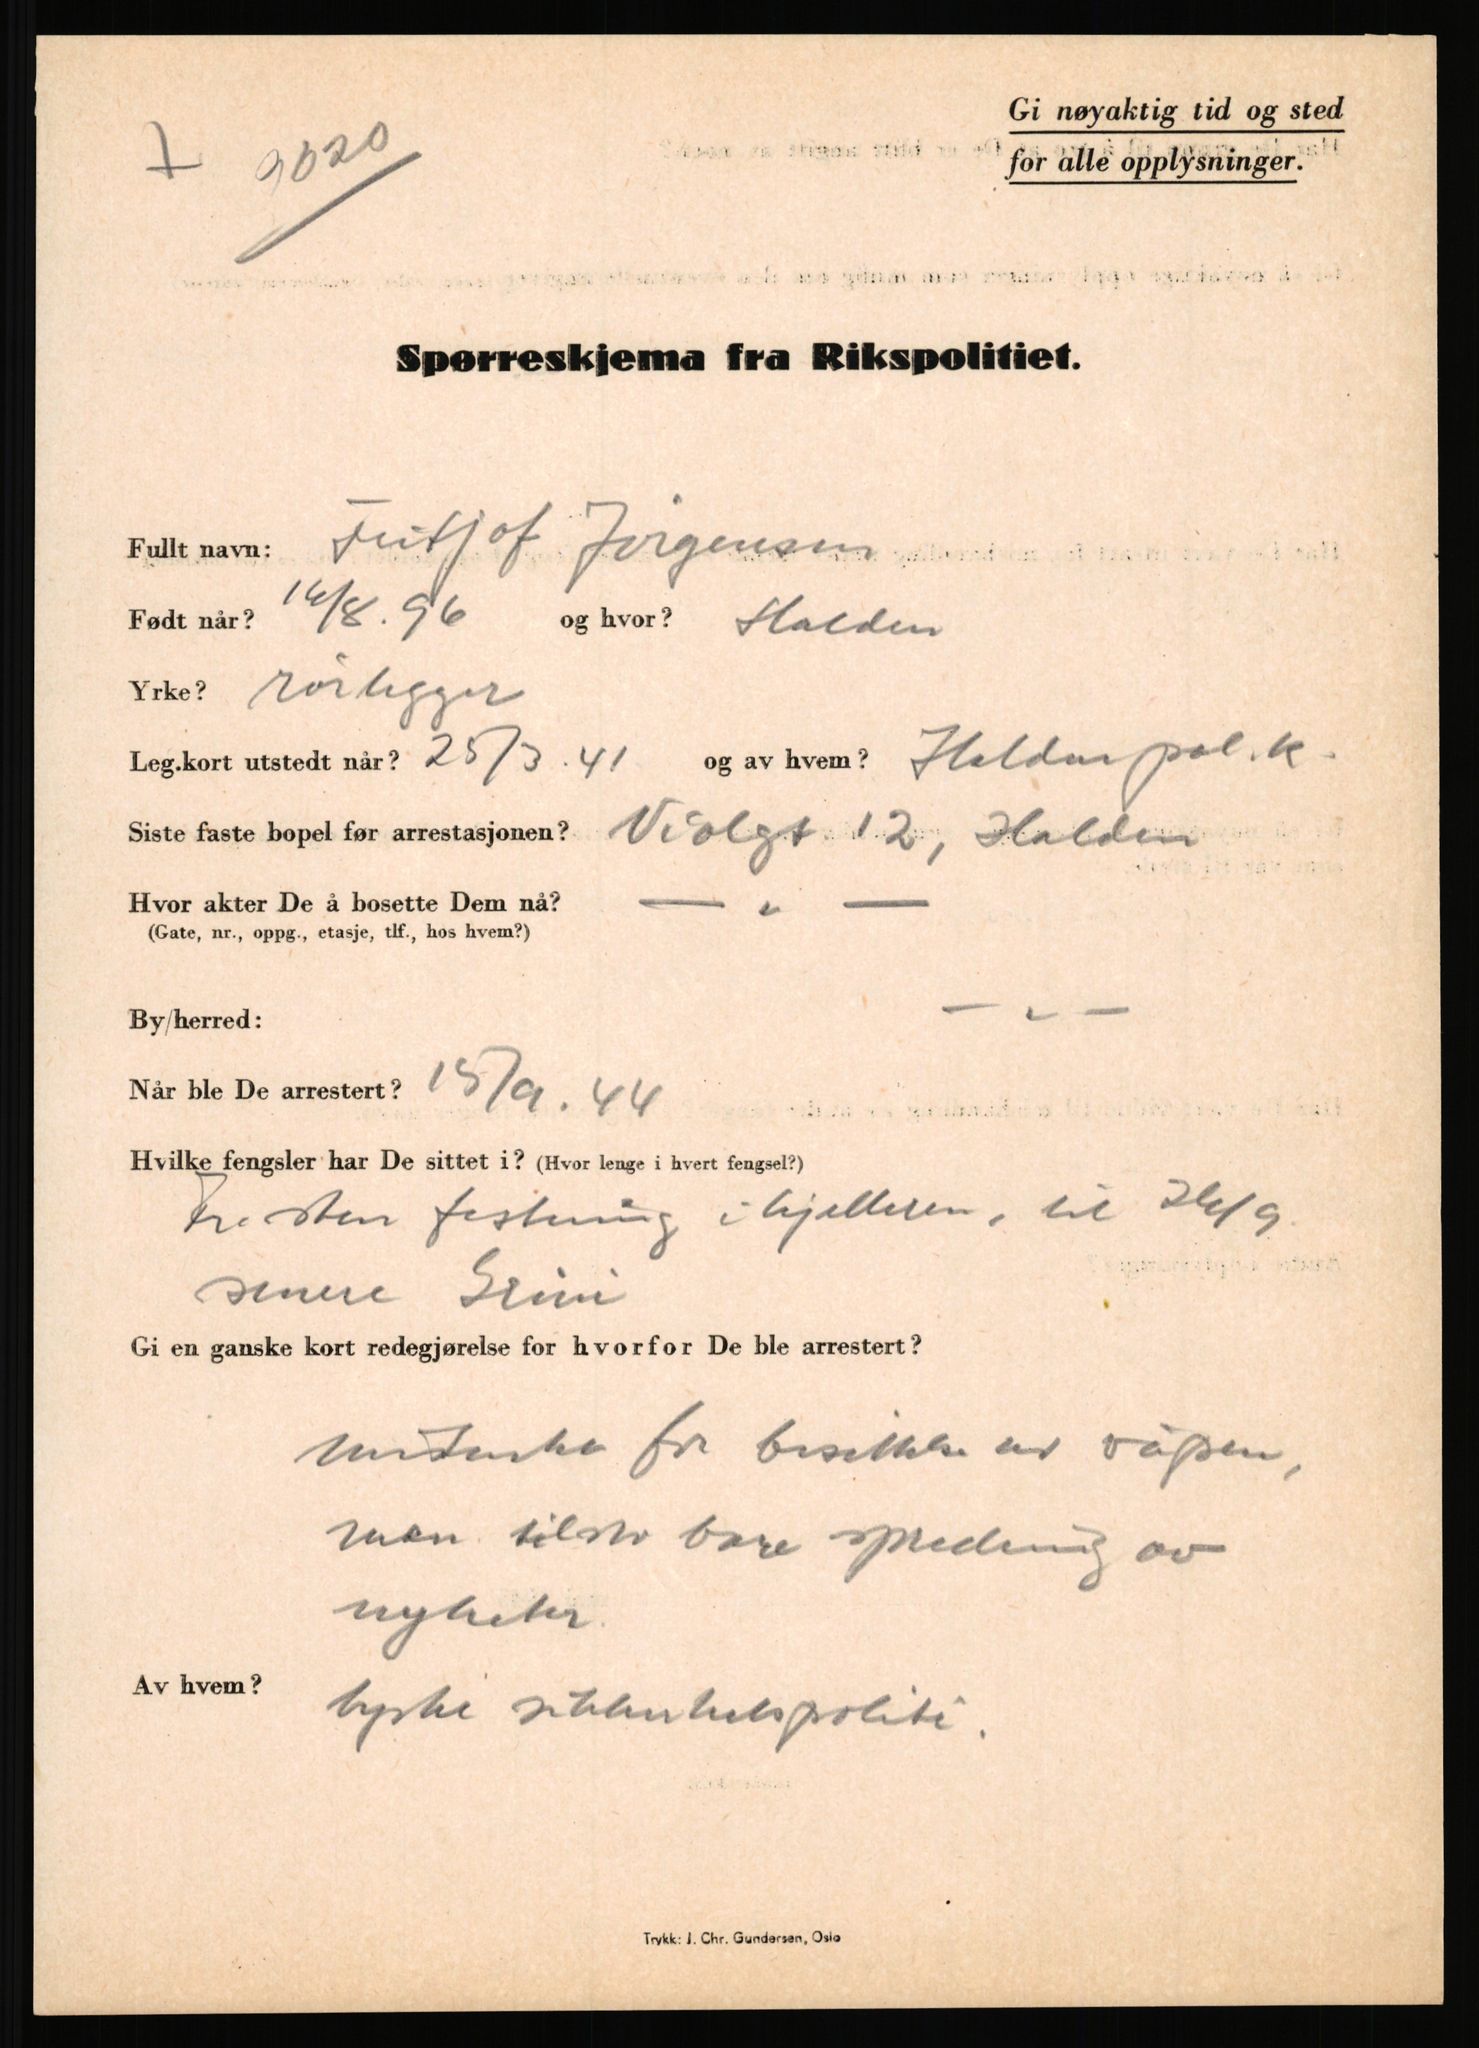 Gi nøyaktig tid og sted
for alle opplysninger.
Spørreskjema fra Rikspolitiet.
Fullt navn: Fritjof Jørgensen
Født når? 16/8.96 og hvor? Halden
Yrke? rørlegger
Leg.kort utstedt når? 25/3.41 og av hvem? Halden pol.k.
Siste faste bopel før arrestasjonen? Violgt 12, Halden
Hvor akter De å bosette Dem nå? — " —
(Gate, nr., oppg., etasje, tlf., hos hvem?)
By/herred: — " —
Når ble De arrestert? 15/9.44
Hvilke fengsler har De sittet i? (Hvor lenge i hvert fengsel?)
Fr.sten festning i kjelleren, til
senere Grini
Gi en ganske kort redegjørelse for hvorfor De ble arrestert?
mistenkt for besittelse av våpen,
men tilsto bare spredning av
nyheter.
Av hvem? tyske sikkerhetspoliti.
Trykk: J. Chr. Gundersen, Oslo